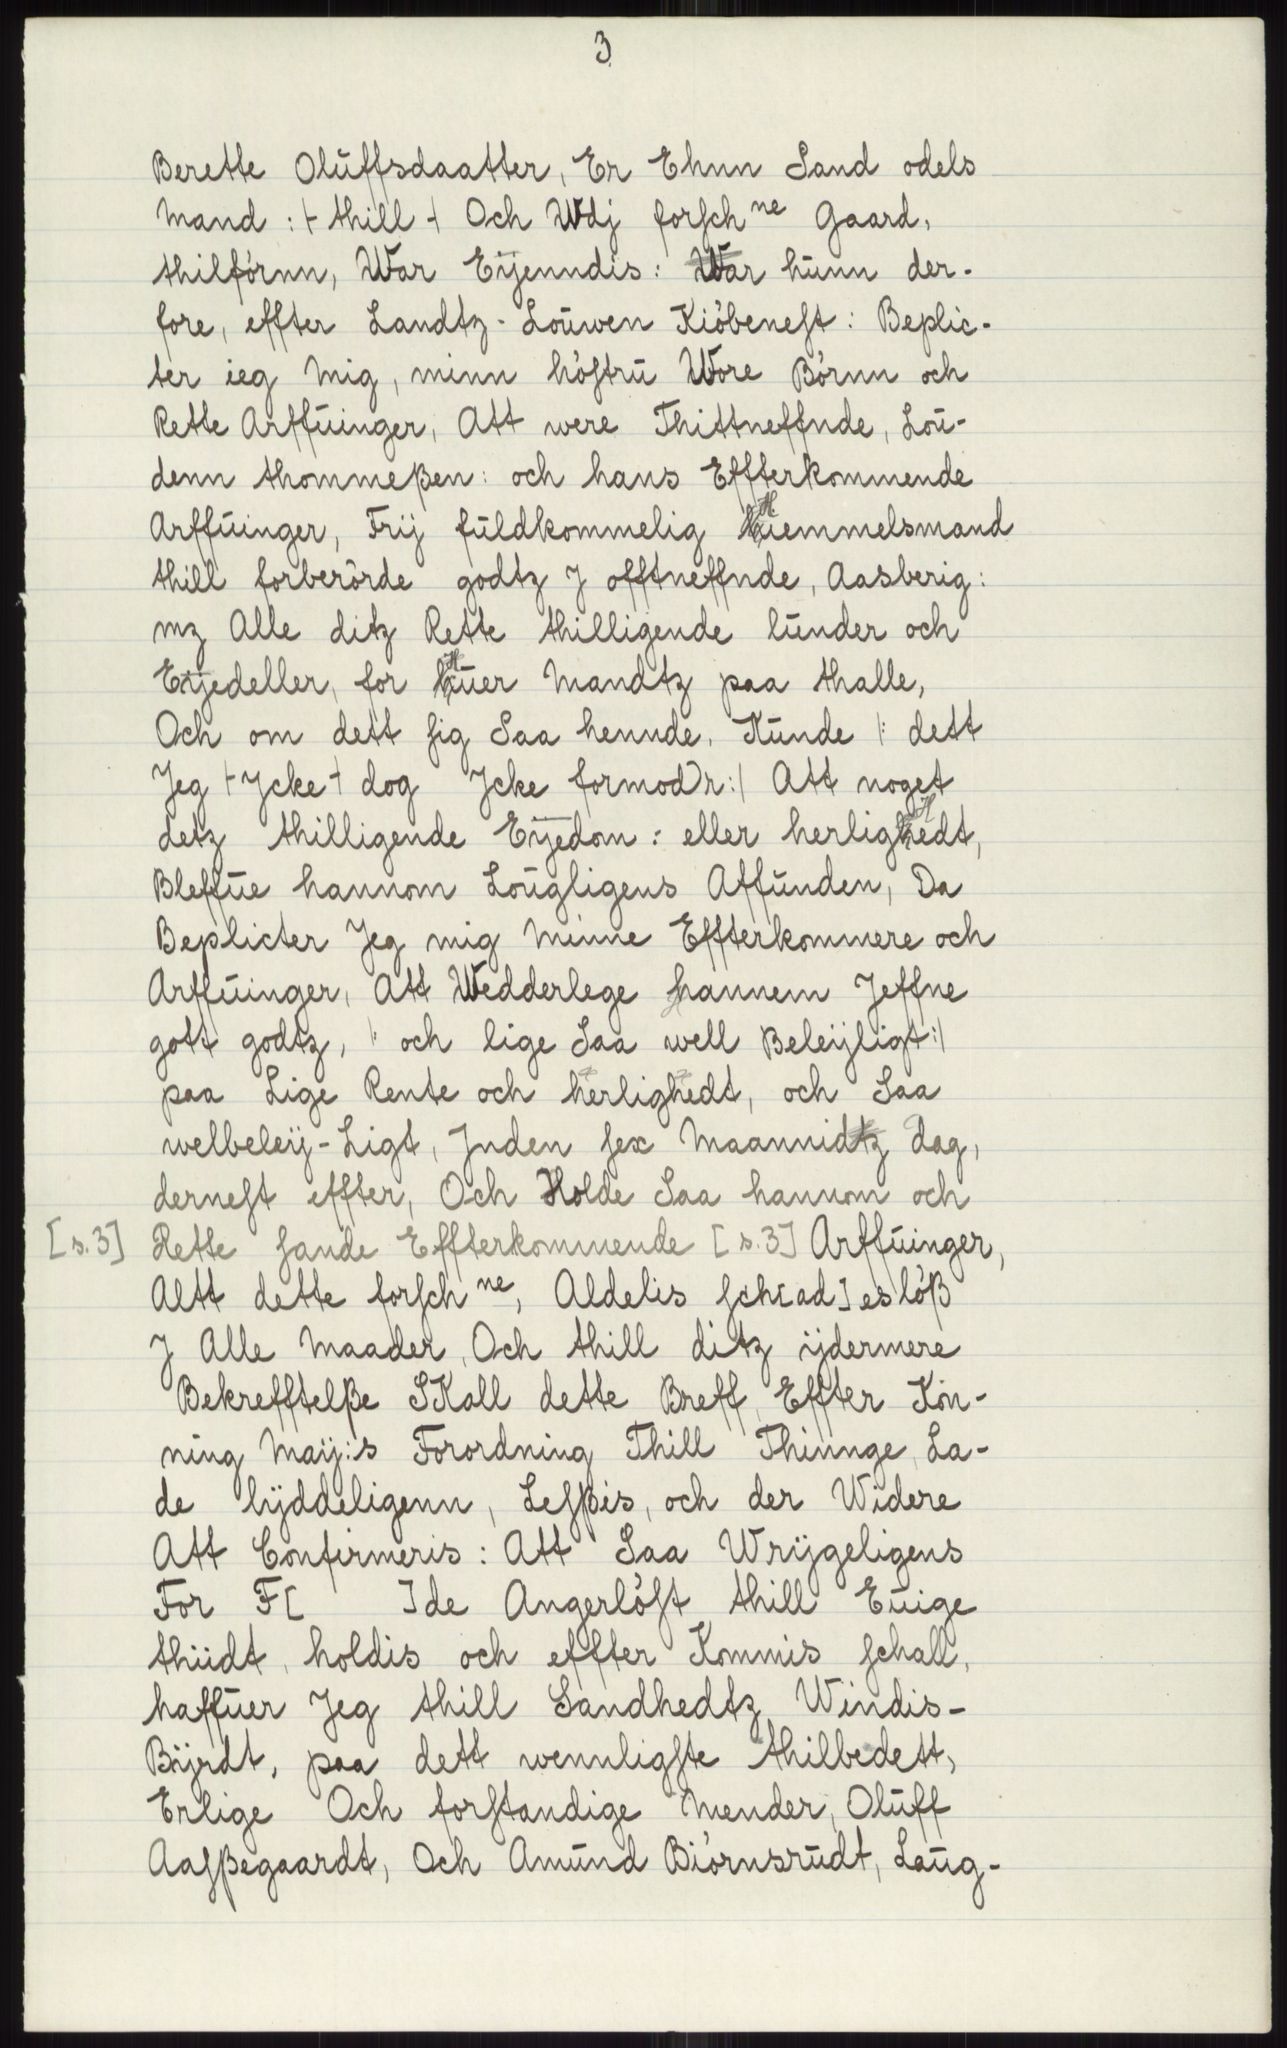 3
Berette Olūffsdaatter, Er Ehnn Sand odels
Mand : ⊦ thill ⊣ Och Wdj forsch ne Gaard,
thilförnn, War Eÿenndis : War hūnn der-
fore, effter Landtz-Loūwen Kiöbenest : Beplic-
ter ieg Mig, minn höstrū Wore Börnn och
Rette Arffūinger, Att were Thittneffnde, Loū-
denn thommeßen : och hans Effterkommende
Arffūinger, Frij fūldkommelig Hiemmelsmand
thill forberörde godtz J offtneffnde, Aasberig :
mz Alle ditz Rette thilligende lūnder och
Eÿedeller, for Hūer Mandtz paa thalle,
Och om dett sig Saa hennde, Kūnde /: dett
Jeg ⊦ Jcke ⊣ dog Jcke formodr :/ Att noget
detz thilligende Eÿedom : eller herligHedt,
Bleffūe hannom Loūgligens Affūnden, Da
Beplicter Jeg mig Minne Effterkommere och
Arffūinger, Att Wedderlege hannem Jeffne
gott godtz, /: och lige Saa well Beleÿligt :/
paa Lige Rente och herlighedt, och Saa
welbeleÿ-Ligt, Jnden sex Maannidtz dag,
dernest effter, Och Holde Saa hannom och
[s.3] Rette sande Effterkommende [s.3] Arffūinger,
Altt dette forsch ne, Aldelis sch[ad]eslöß
J Alle Maader, Och thill ditz ÿdermere
Bekrefftelße SKall dette Breff, Effter Kön-
ning Maÿ:s Forordning Thill Thinnge, La-
de lÿddeligenn, Lesßis, och der Widere
Att Confirmeris : Att Saa Wrÿgeligens
For F[ ]de Angerlöst thill Eūige
thiidt, holdis och effter Kommis schall,
haffūer Jeg thill Sandhedtz Windis-
Bÿrdt, paa dett wennligste thilbedett,
Erlige Och forstandige Mender, Olūff
Aasßegaardt, Och Amūnd Biörnsrūdt, Laūg-